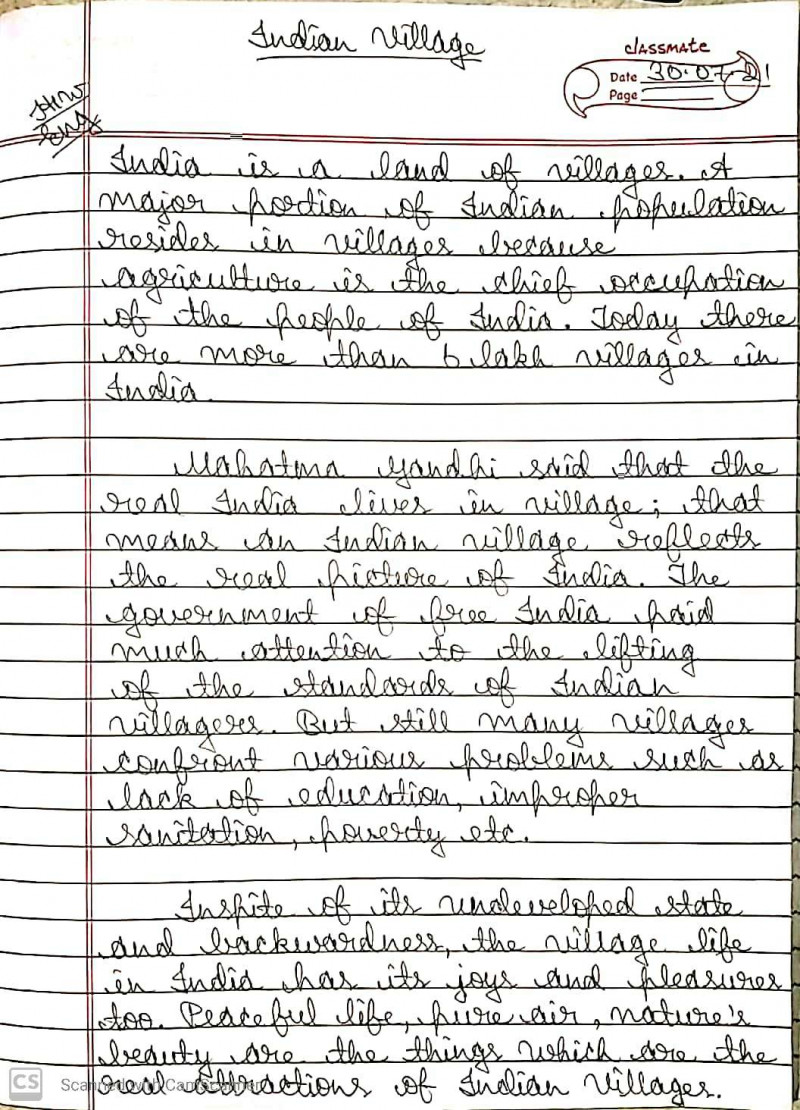 Indian Village
classmate
Date 30.07.21
Page
H.W
Eng
India is a land of villages. A
major portion of Indian population
resides in villages because
agriculture is the chief occupation
of the people of India. Today there
are more than 6 lakh villages in
India.
Mahatma Gandhi said that the
real India lives in village; that
means an Indian village reflects
the real picture of India. The
government of free India paid
much attention to the lifting
of the standards of Indian
villagers. But still many villages
confront various problems such as
lack of education, improper
sanitation, poverty etc.
Inspite of its undeveloped state
and backwardness, the village life
in India has its joys and pleasures
too. Peaceful life, pure air, nature's
beauty are the things which are the
real attractions of Indian Villages.
CS Scanned with CamScanner